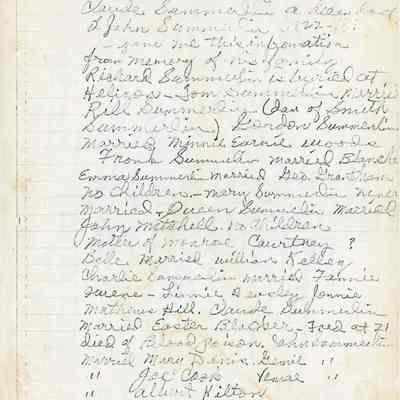 Claude Summerlin a
of John Summerlin
gave me this information
from memory of his family
Richard Summerlin is buried at
Tom Summerlin Married
Rill Summerlin (dau of Smith
Summerlin) Gordon Summerlin
Married Minnie Earnie Woods
Frank Summerlin Married Blanche
Emma Summerlin Married Geo. Grantham
No Children. - Mary Summerlin never
Married. Queen Summerlin Married
John Metshell. No Children
Mother of Monroe Courtney ?
Belle Married William Kelley
Charlie Summerlin Married Fennie
Jennie
Mathews Hill. Claude Summerlin
Married Easter - Fred at 21
died of Blood Poison. John Summerlin
Married Mary Davis. "
" Joe Cook "
" Albert Hilton